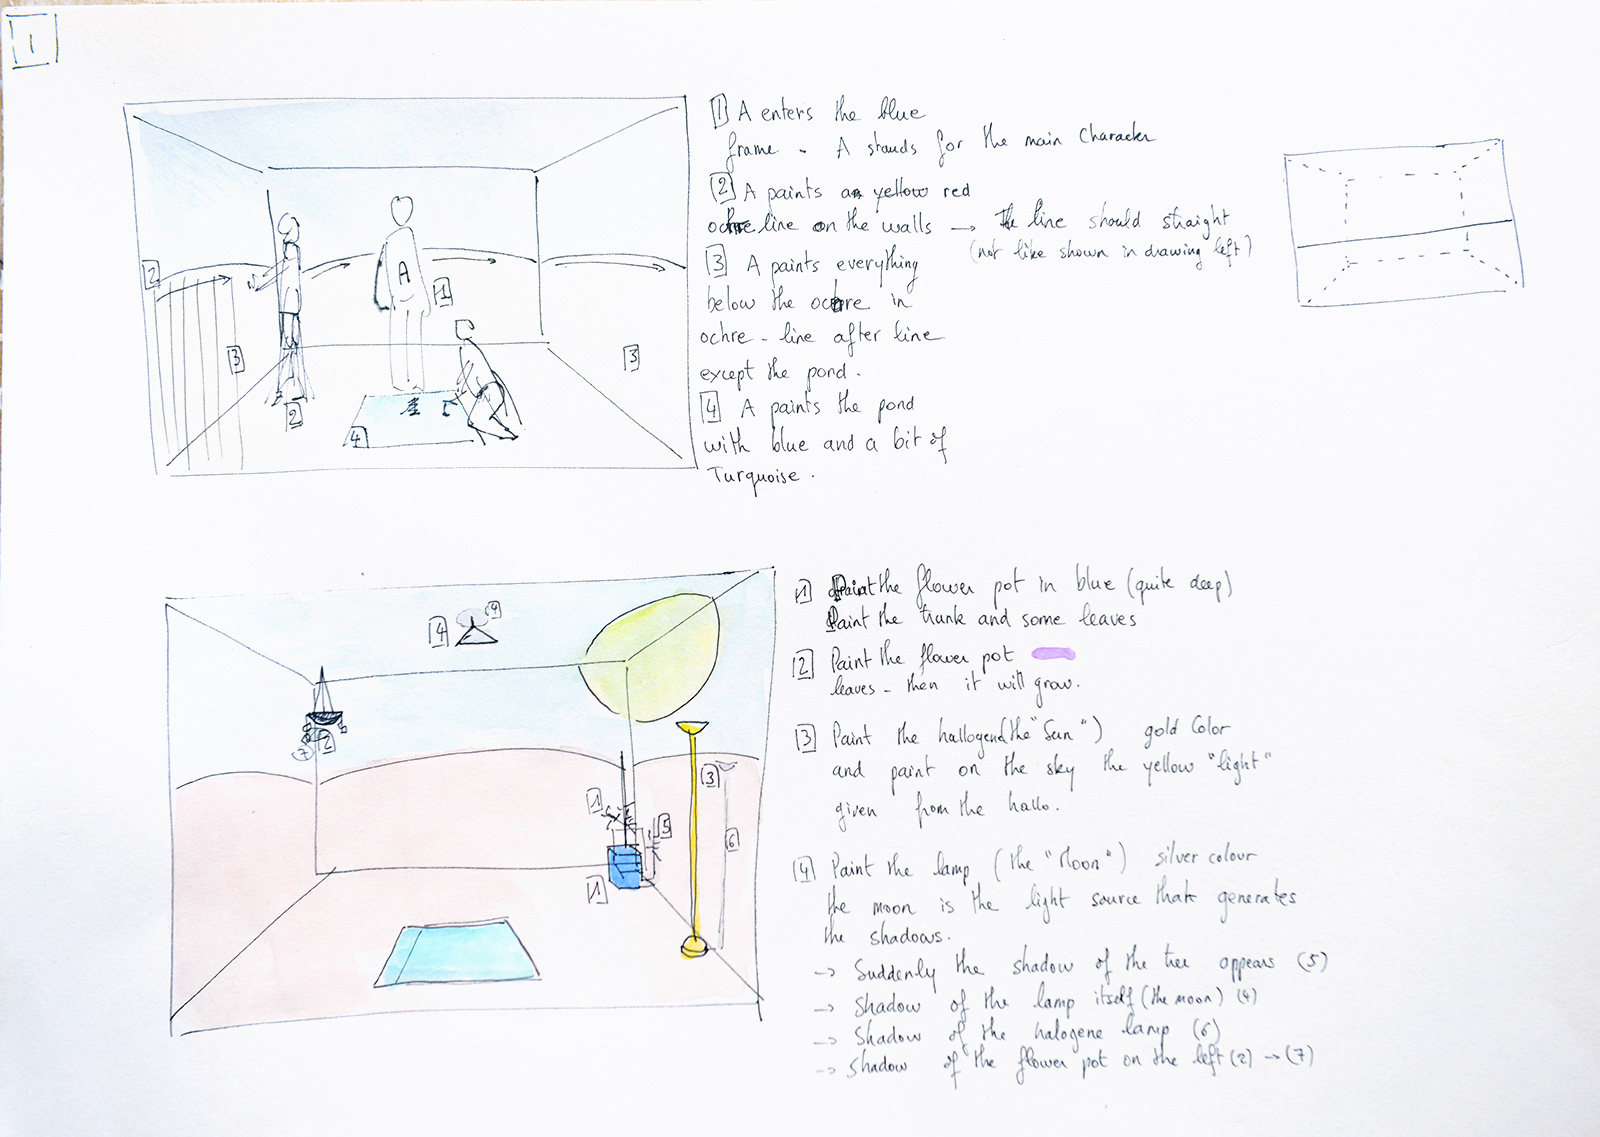 1
1 A enters the blue
frame - A stands for the main Character
2 A paints an yellow red
ochre line on the walls → The line should straight
(not like shown in drawing left)
3 A paints everything
below the ochre in
ochre - line after line
except the pond.
4 A paints the pond
with blue and a bit of
Turquoise.
2
A
1
3
3
2
4
1 Paint the flower pot in blue (quite deep)
Paint the trunk and some leaves
2 Paint the flower pot
leaves - then it will grow.
3 Paint the hallogen (the "Sun") gold Color
and paint on the sky the yellow "light"
given from the hallo.
4 Paint the lamp (the "Moon") silver colour
the moon is the light source that generates
the shadows.
→ Suddenly the shadow of the tree appears (5)
→ Shadow of the lamp itself (the moon) (4)
→ Shadow of the halogene lamp (6)
→ Shadow of the flower pot on the left (2) → (7)
4
(4)
2
(7)
3
1
5
6
1